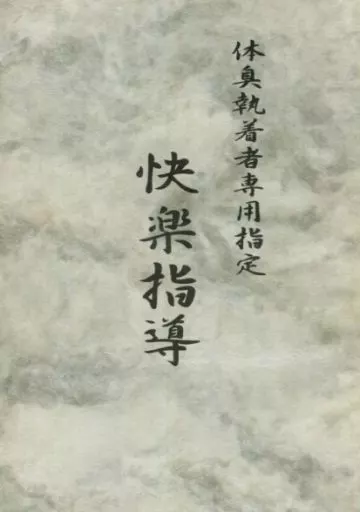 体臭執着者専用指定
快楽指導